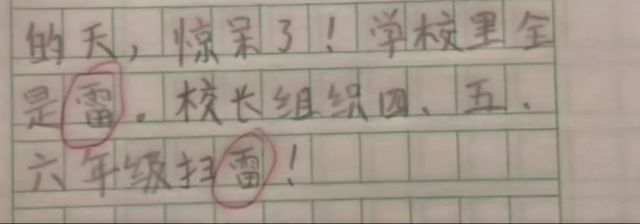 的天，惊呆了！学校里全
是雷。校长组织四、五、
六年级扫雷！